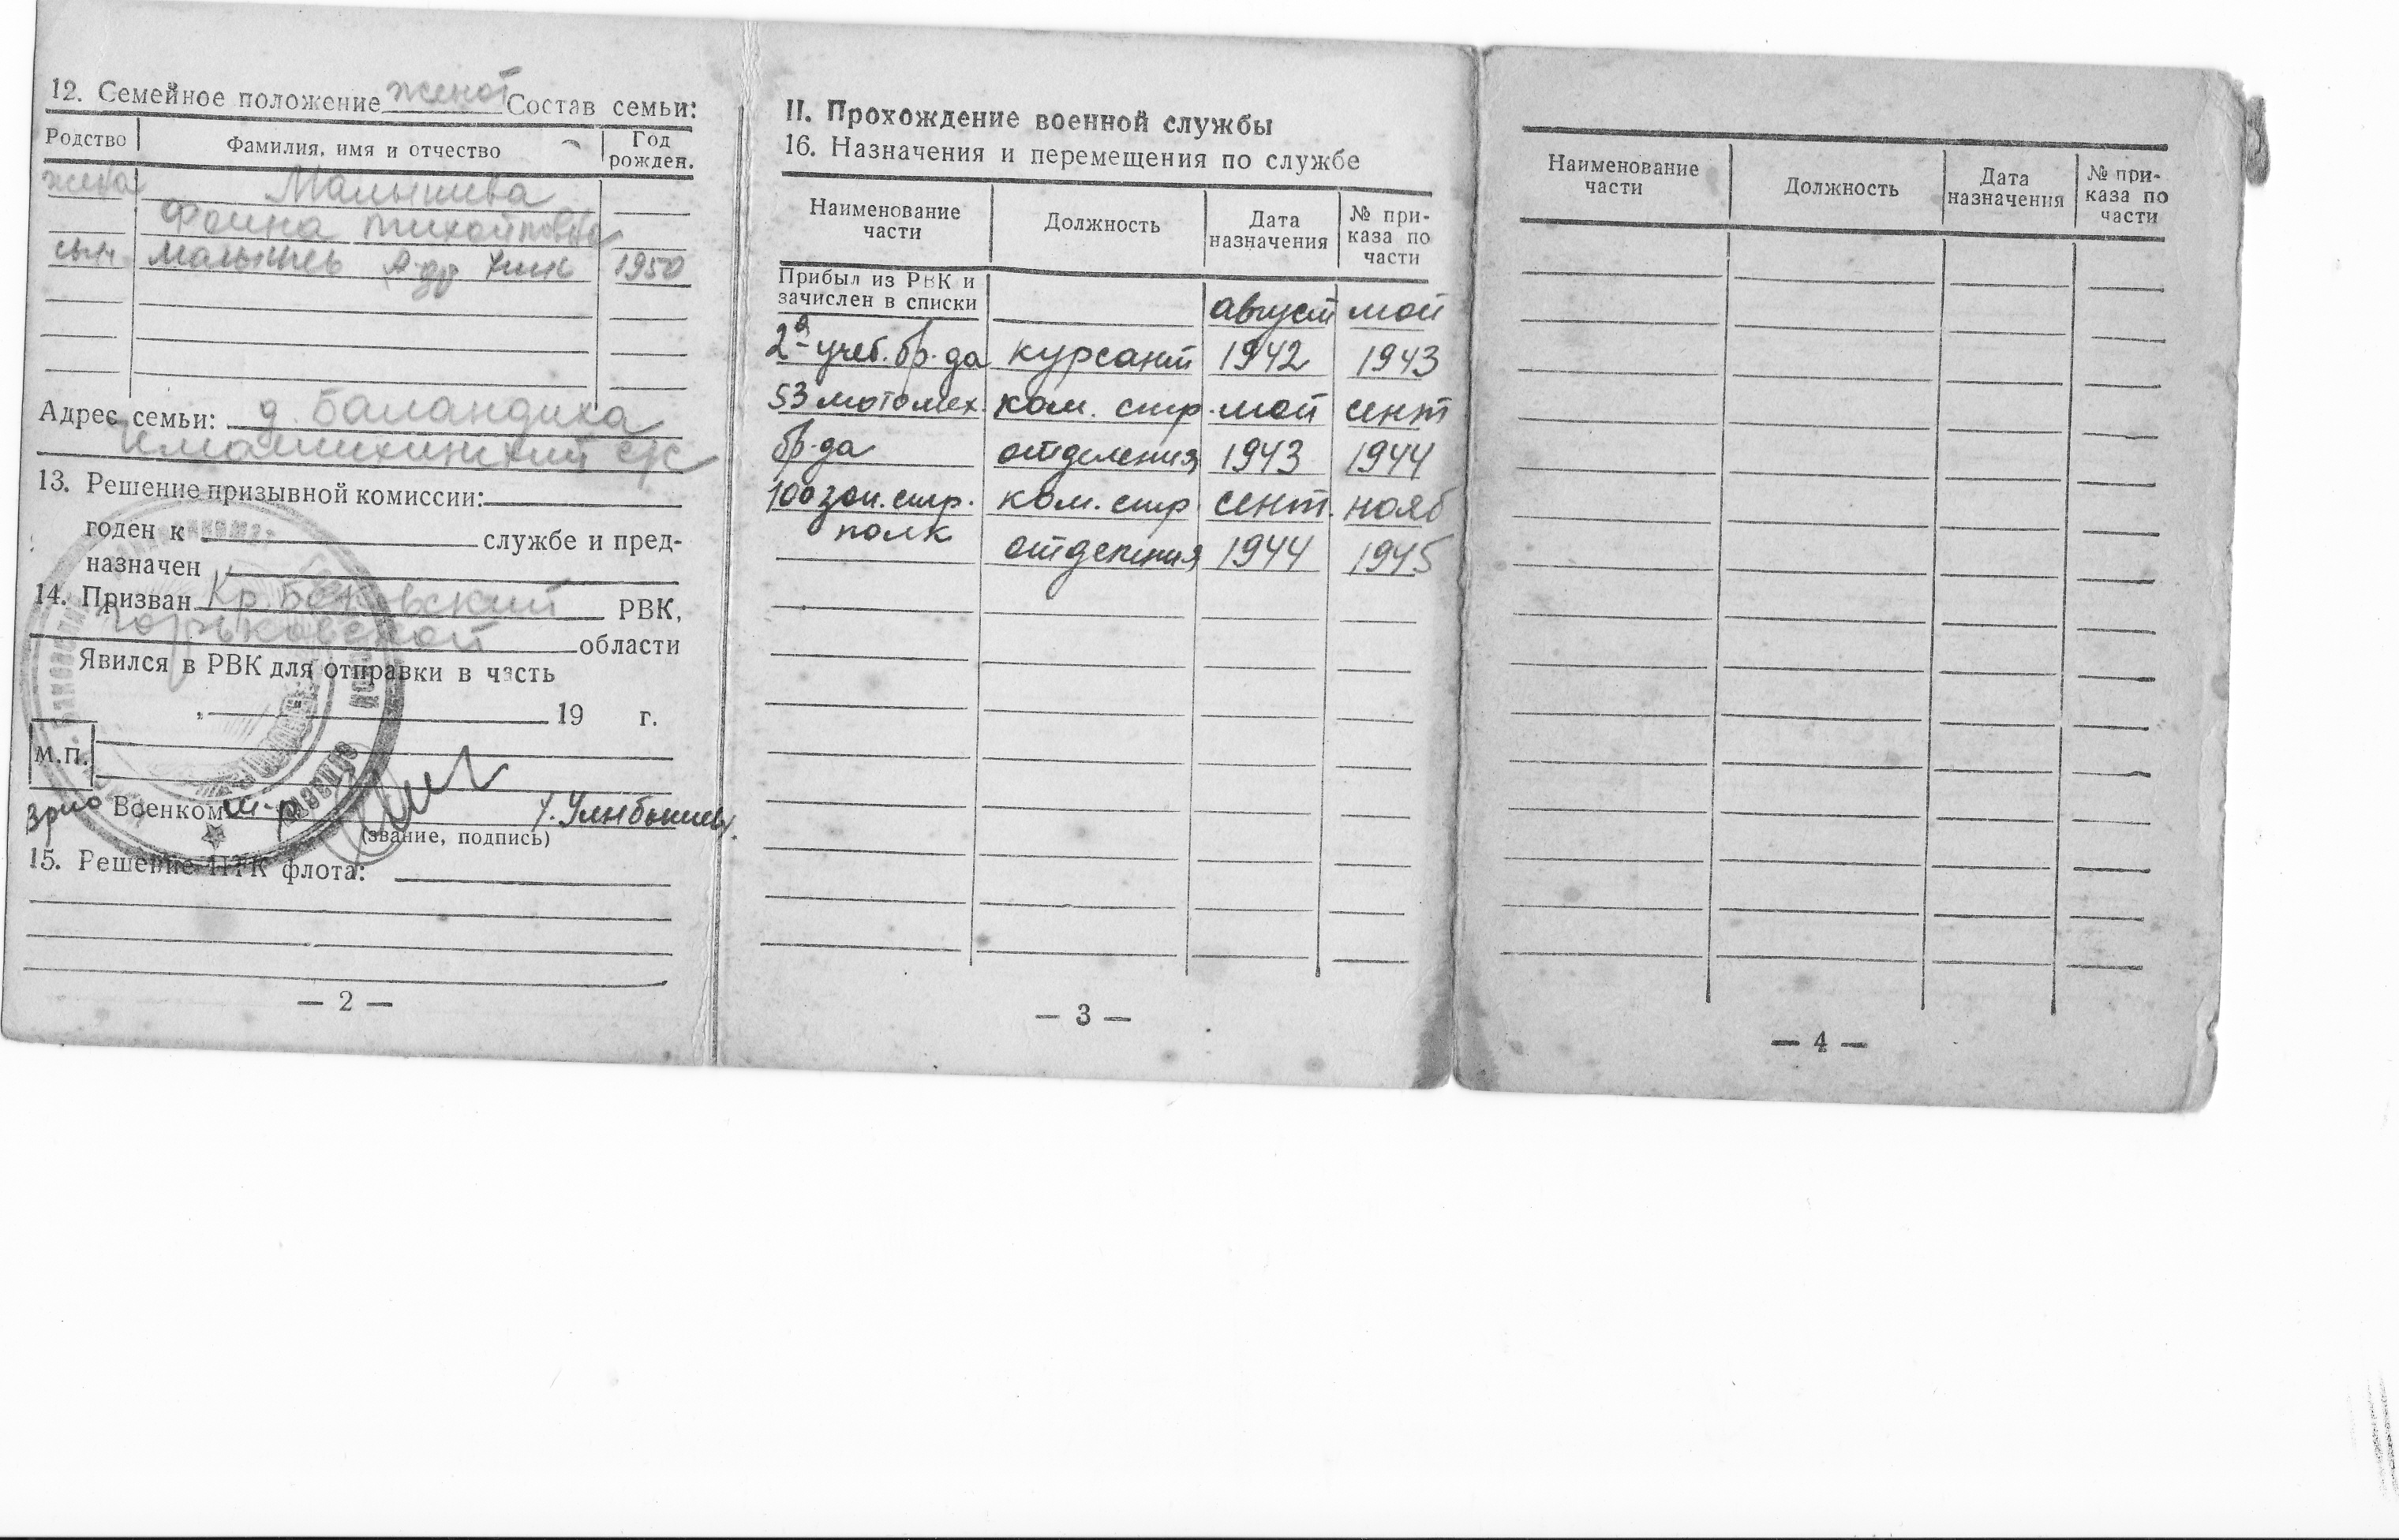 12. Семейное положение женат Состав семьи:
Родство Фамилия, имя и отчество Год рожден.
жена Малышева
Фаина Тихоновна
сын Малышев 1950
Адрес семьи: д. Баландиха
с/с
13. Решение призывной комиссии:
годен к службе и пред-
назначен
14. Призван Кр. Баковский РВК,
Горьковской области
Явился в РВК для отправки в часть
" " 19 г.
М.П.
Врио Военком м-р
(звание, подпись)
15. Решение ПРК флота:
— 2 —
II. Прохождение военной службы
16. Назначения и перемещения по службе
Наименование части Должность Дата назначения № при-каза по части
Прибыл из РВК и
зачислен в списки август май
2-я учеб. бр-да курсант 1942 1943
53 мотомех. ком. стр. май сент
бр-да отделения 1943 1944
100 зап. стр. ком. стр. сент. нояб
полк отделения 1944 1945
— 3 —
Наименование части Должность Дата назначения № при-каза по части
— 4 —